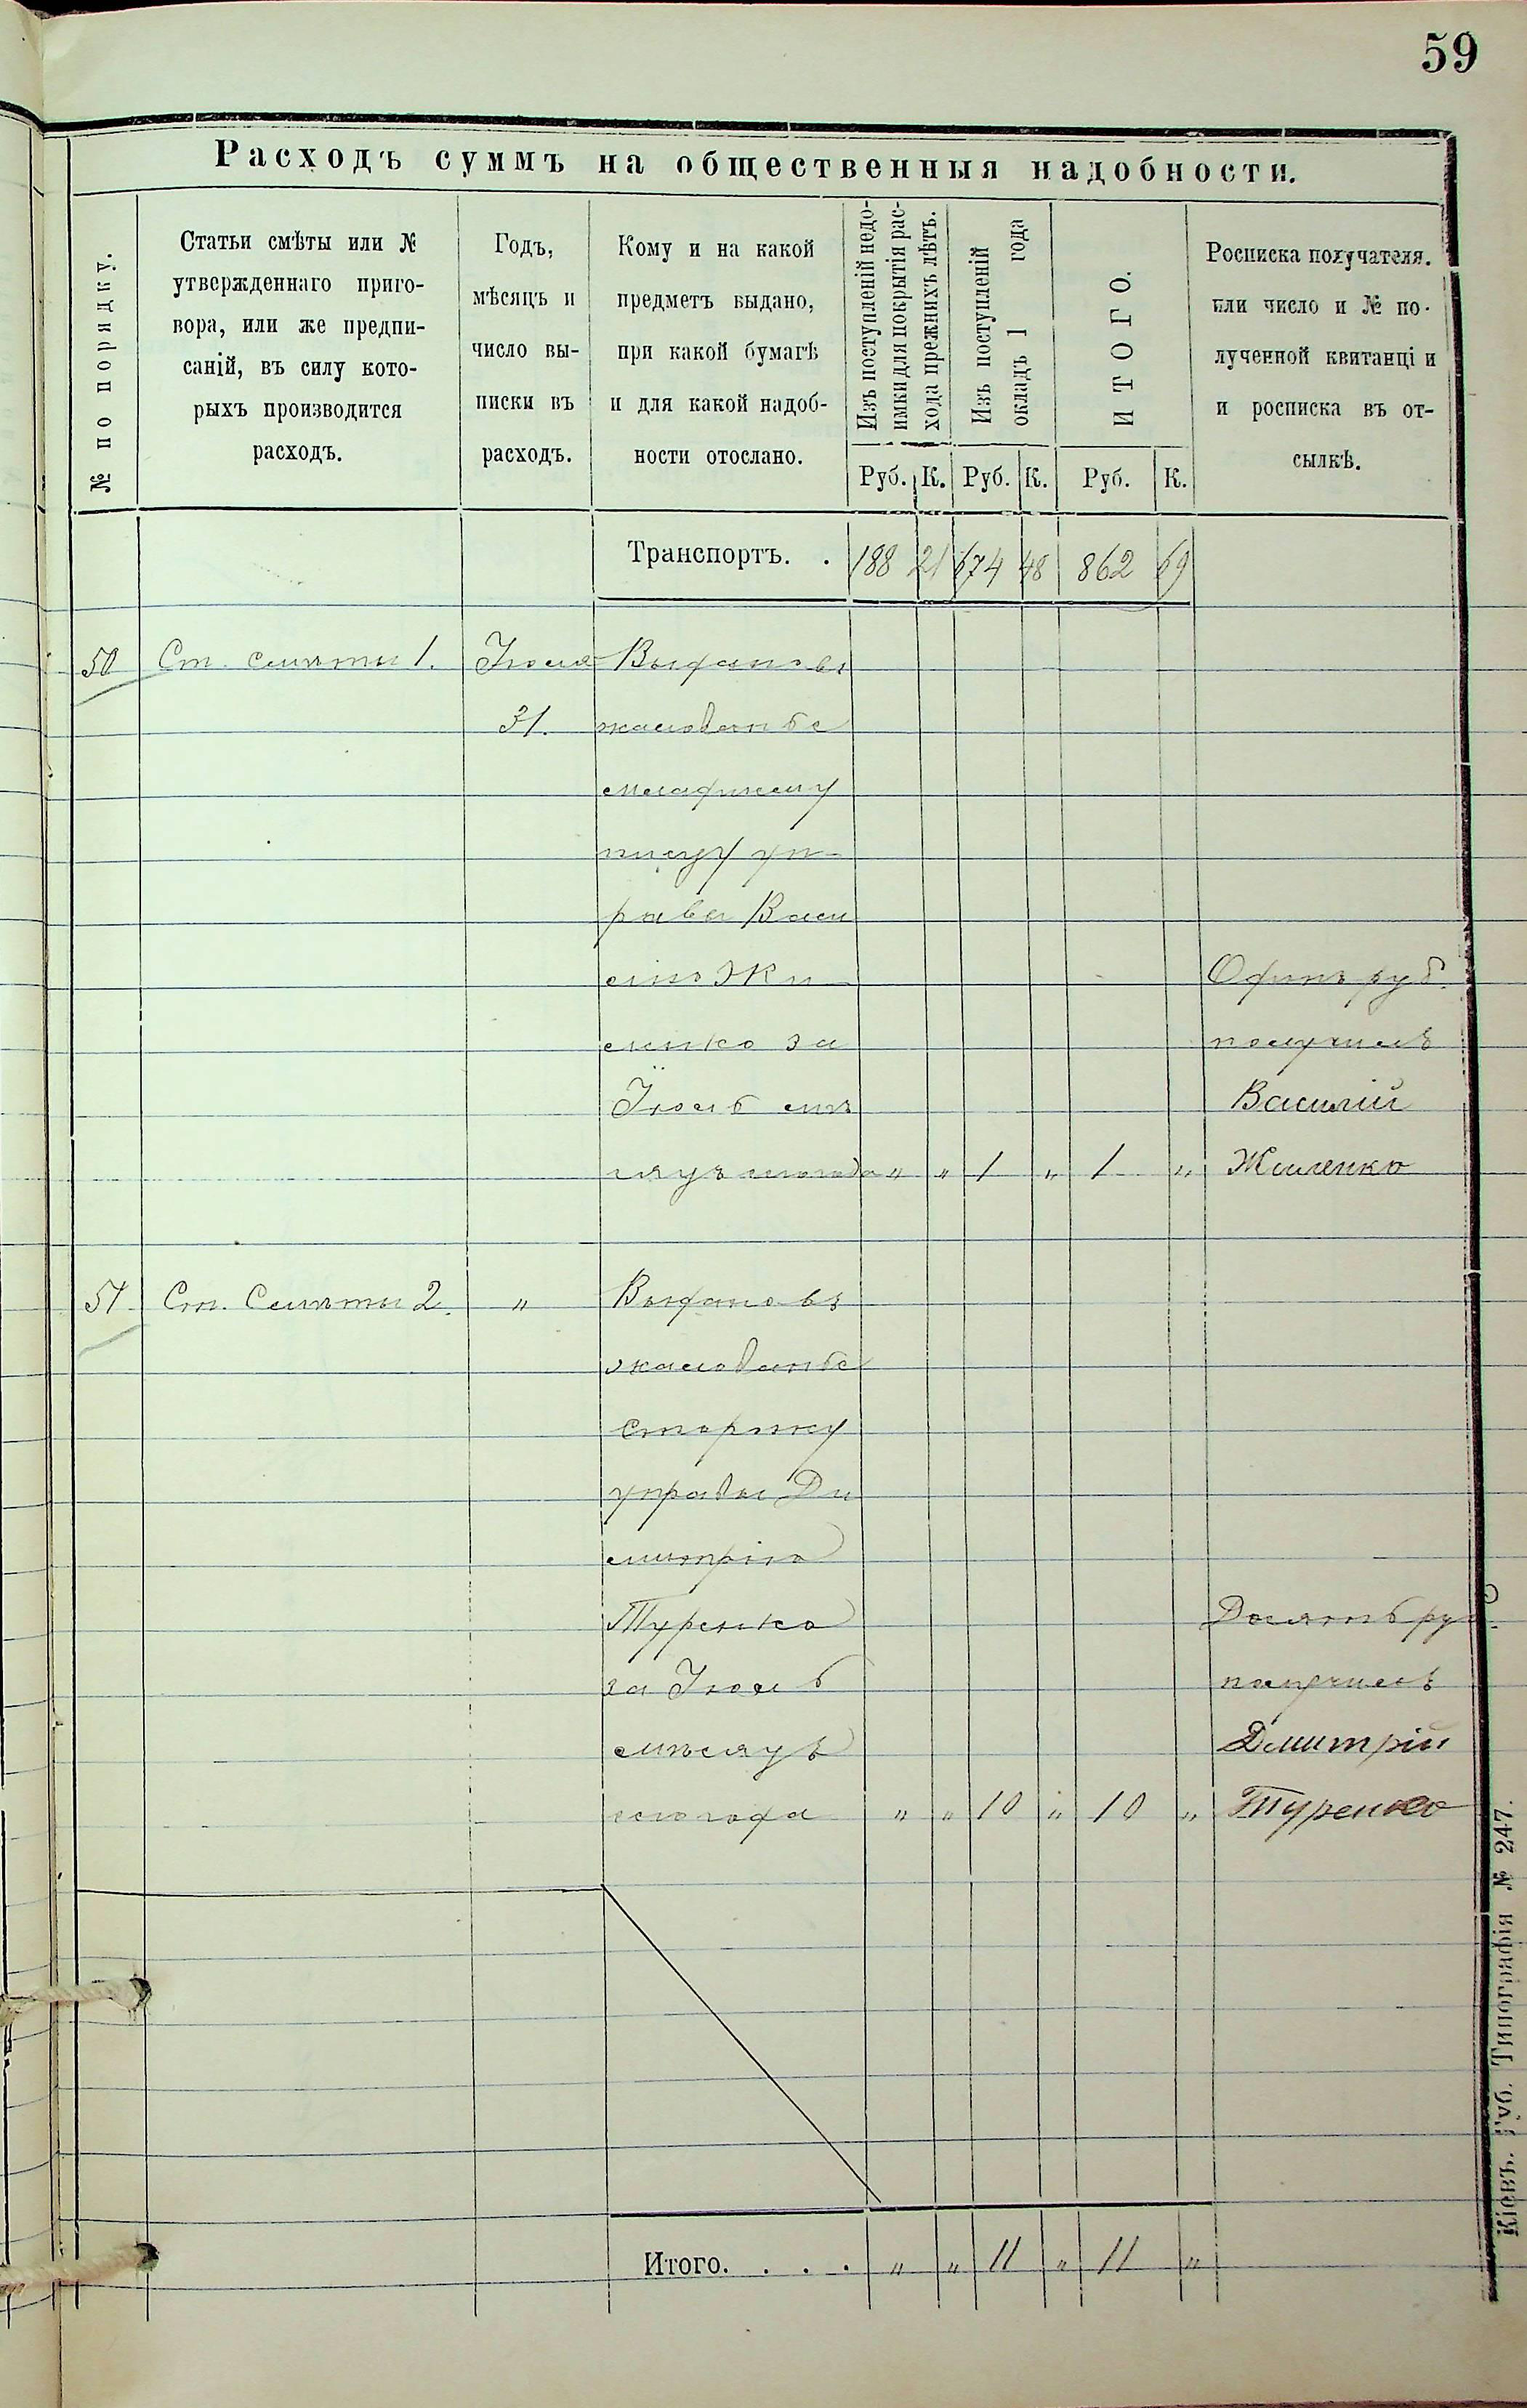 59
Расходъ суммъ на общественныя надобности.
№ по порядку.
Статьи смѣты или №
утвержденнаго приго-
вора, или же предпи-
саній, въ силу кото-
рыхъ производится
расходъ.
Годъ,
мѣсяцъ и
число вы-
писки въ
расходъ.
Кому и на какой
предметъ выдано,
при какой бумагѣ
и для какой надоб-
ности отослано.
Изъ поступленій недо-
имки для покрытія рас-
хода прежнихъ лѣтъ.
Изъ поступленій
окладъ 1 года
ИТОГО.
Росписка получателя.
или число и № по-
лученной квитанціи
и росписка въ от-
сылкѣ.
Руб. К. Руб. К. Руб. К.
Транспортъ. . 188 21 674 48 862 69
50 Ст. смѣты 1. Іюля Выдано въ
31. жалованье
младшему
писцу уп-
равы Васи
лію Жи-
ленко за Одинъ руб.
получилъ
Іюль мѣ Василій
сяцъ сего года " " 1 " 1 " Жиленко
51 Ст. Смѣты 2. " Выдано въ
жалованье
сторожу
управы Ди
митрію
Туренко Десять руб.
за Іюль получилъ
мѣсяцъ Дмитрій
сего года " " 10 " 10 " Туренко
Итого. . . . " " 11 " 11 "
Кіевъ. Губ. Типографія № 247.